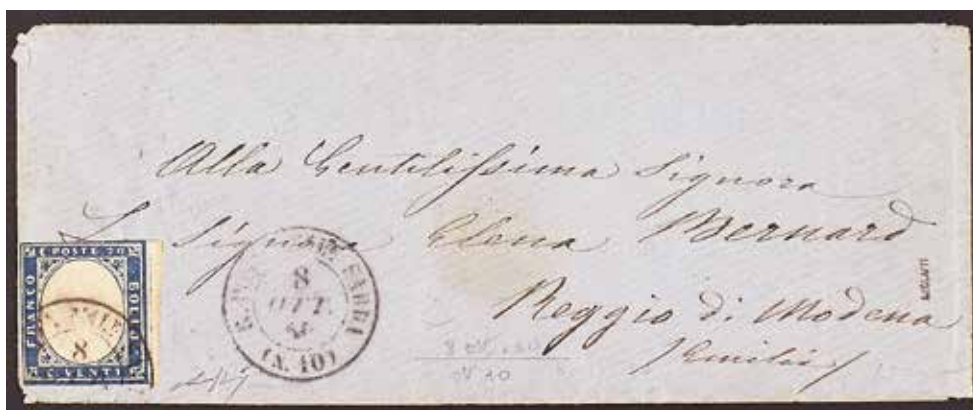 Alla Gentilissima Signora
La Signora Elena Bernard
Reggio di Modena
(Emilia)
C. POSTE 20
FRANCO
BOLLO
C. VENTI
8
SARDA
8
OTT.
(N. 10)
N° 10